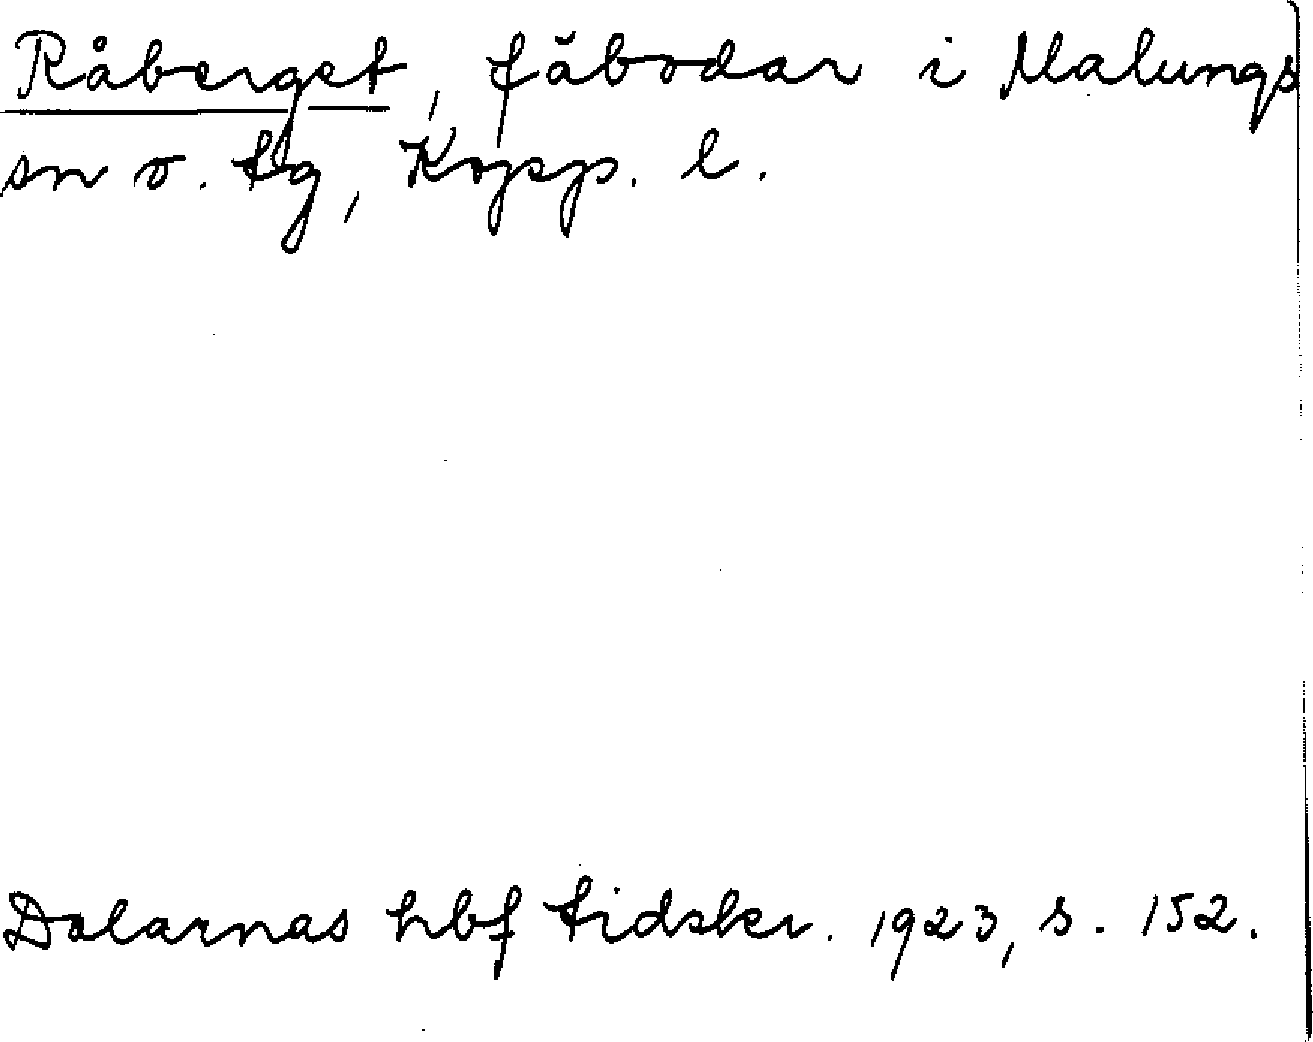 Råberget, fäbodar i Malungs
sn o. tg, Kopp. l.
Dalarnas hbf tidskr. 1923, s. 152.